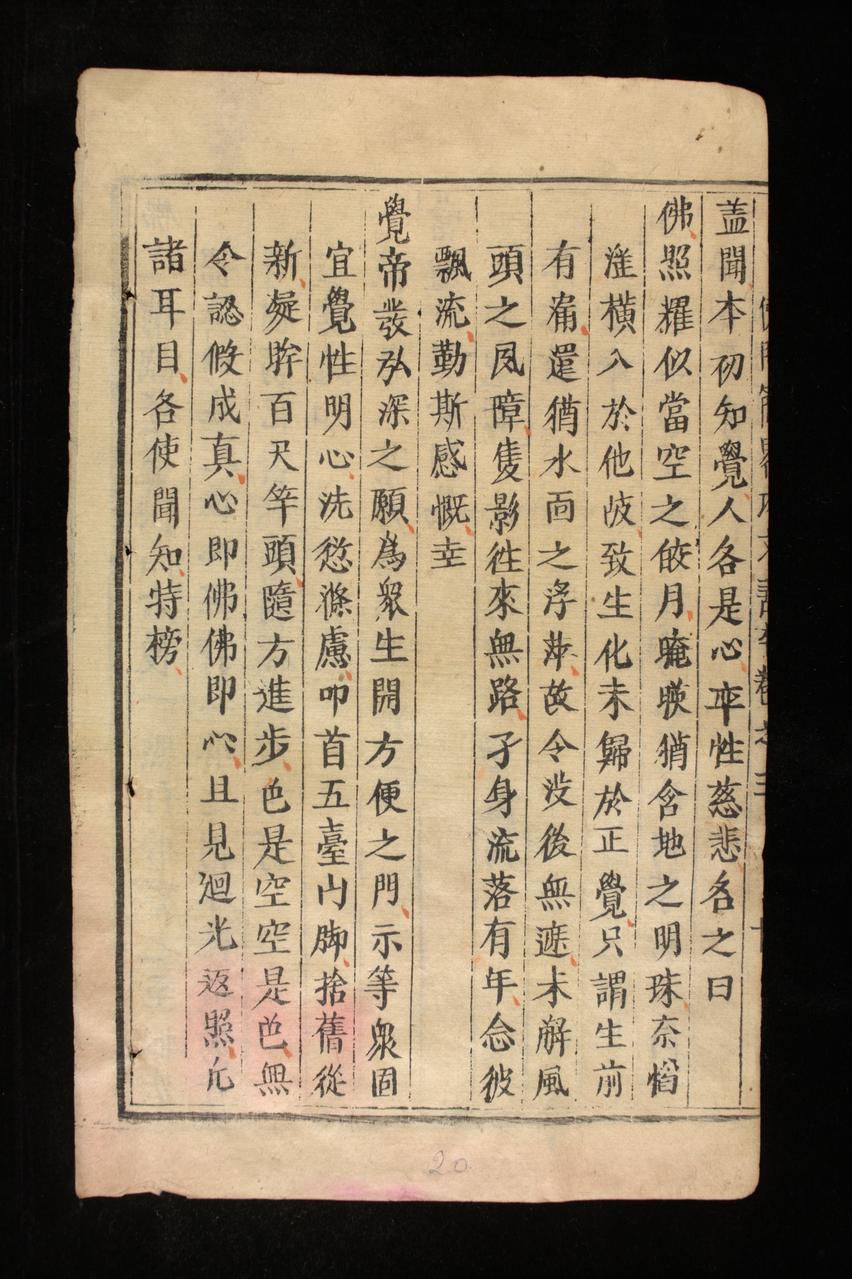 盖聞本初知覺人各是心率性慈悲名之曰
佛照耀似當空之皎月晻暎猶含地之明珠奈惛
淫橫入於他歧致生化未歸於正覺只謂生前
有痛還猶水面之浮萍故令没後無遮未解風
頭之凨障隻影徃來無路孑身流落有年念彼
飄流勤斯感慨幸
覺帝發弘深之願為眾生開方便之門示等眾固
宜覺性明心洗愆滌慮叩首五臺山脚捨舊從
新凝眸百尺竿頭隨方進步色是空空是色無
令認假成真心即佛佛即心且見廻光返照凢
諸耳目各使聞知特榜
卷之三
20